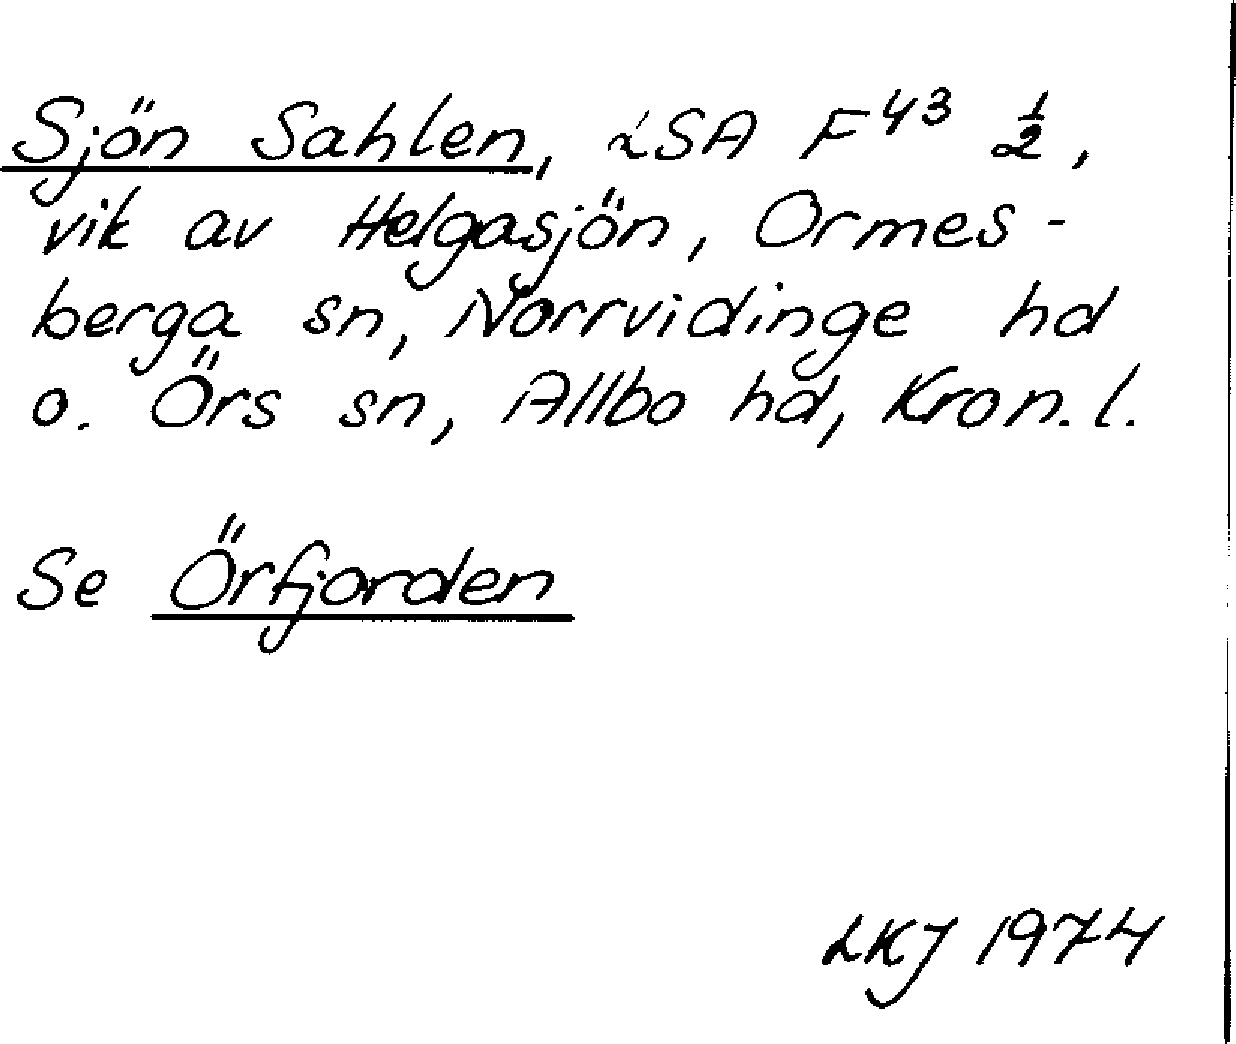 Sjön Sahlen, LSA F⁴³ ½,
vik av Helgasjön, Ormes-
berga sn, Norrvidinge hd
o. Örs sn, Allbo hd, Kron. l.
Se Örfjorden
LKJ 1974